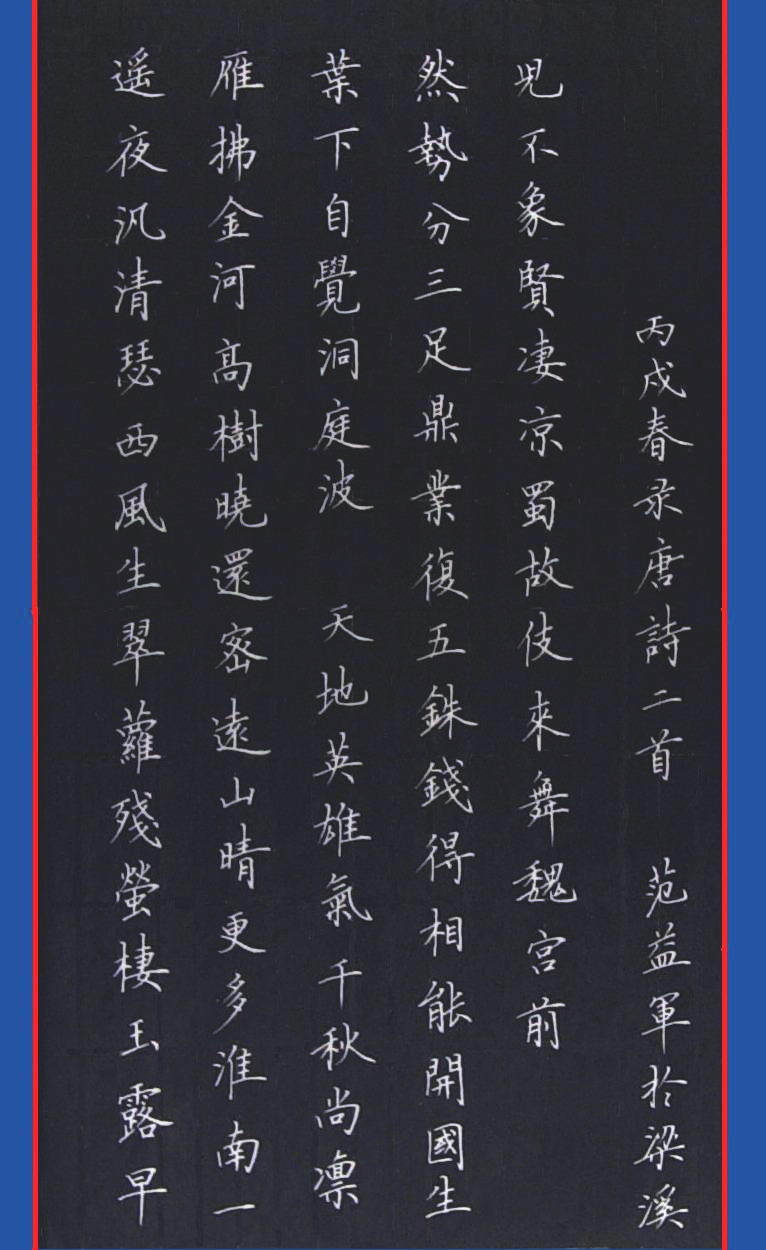 遥夜汎清瑟西風生翠蘿殘螢棲玉露早
雁拂金河高樹曉還密遠山晴更多淮南一
葉下自覺洞庭波 天地英雄氣千秋尚凛
然勢分三足鼎業復五銖錢得相能開國生
兒不象賢凄凉蜀故伎來舞魏宫前
丙戌春录唐詩二首 范益軍於梁溪